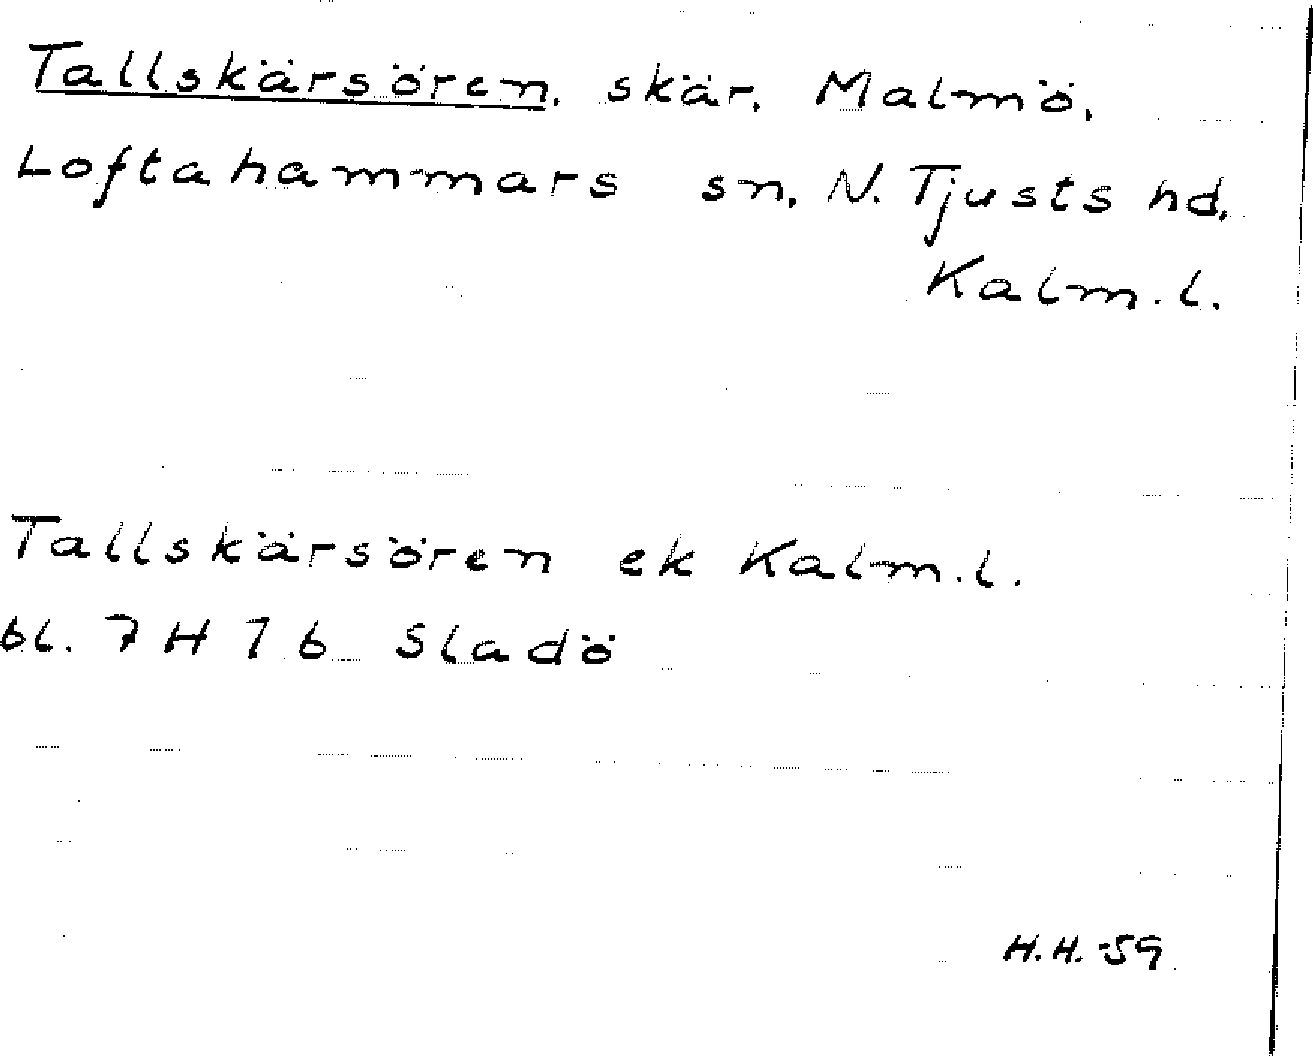 Tallskärsören, skär, Malmö,
Loftahammars sn, N. Tjusts hd,
Kalm. l.
Tallskärsören ek Kalm. l.
bl. 7 H 7 b Sladö
H.H. -59